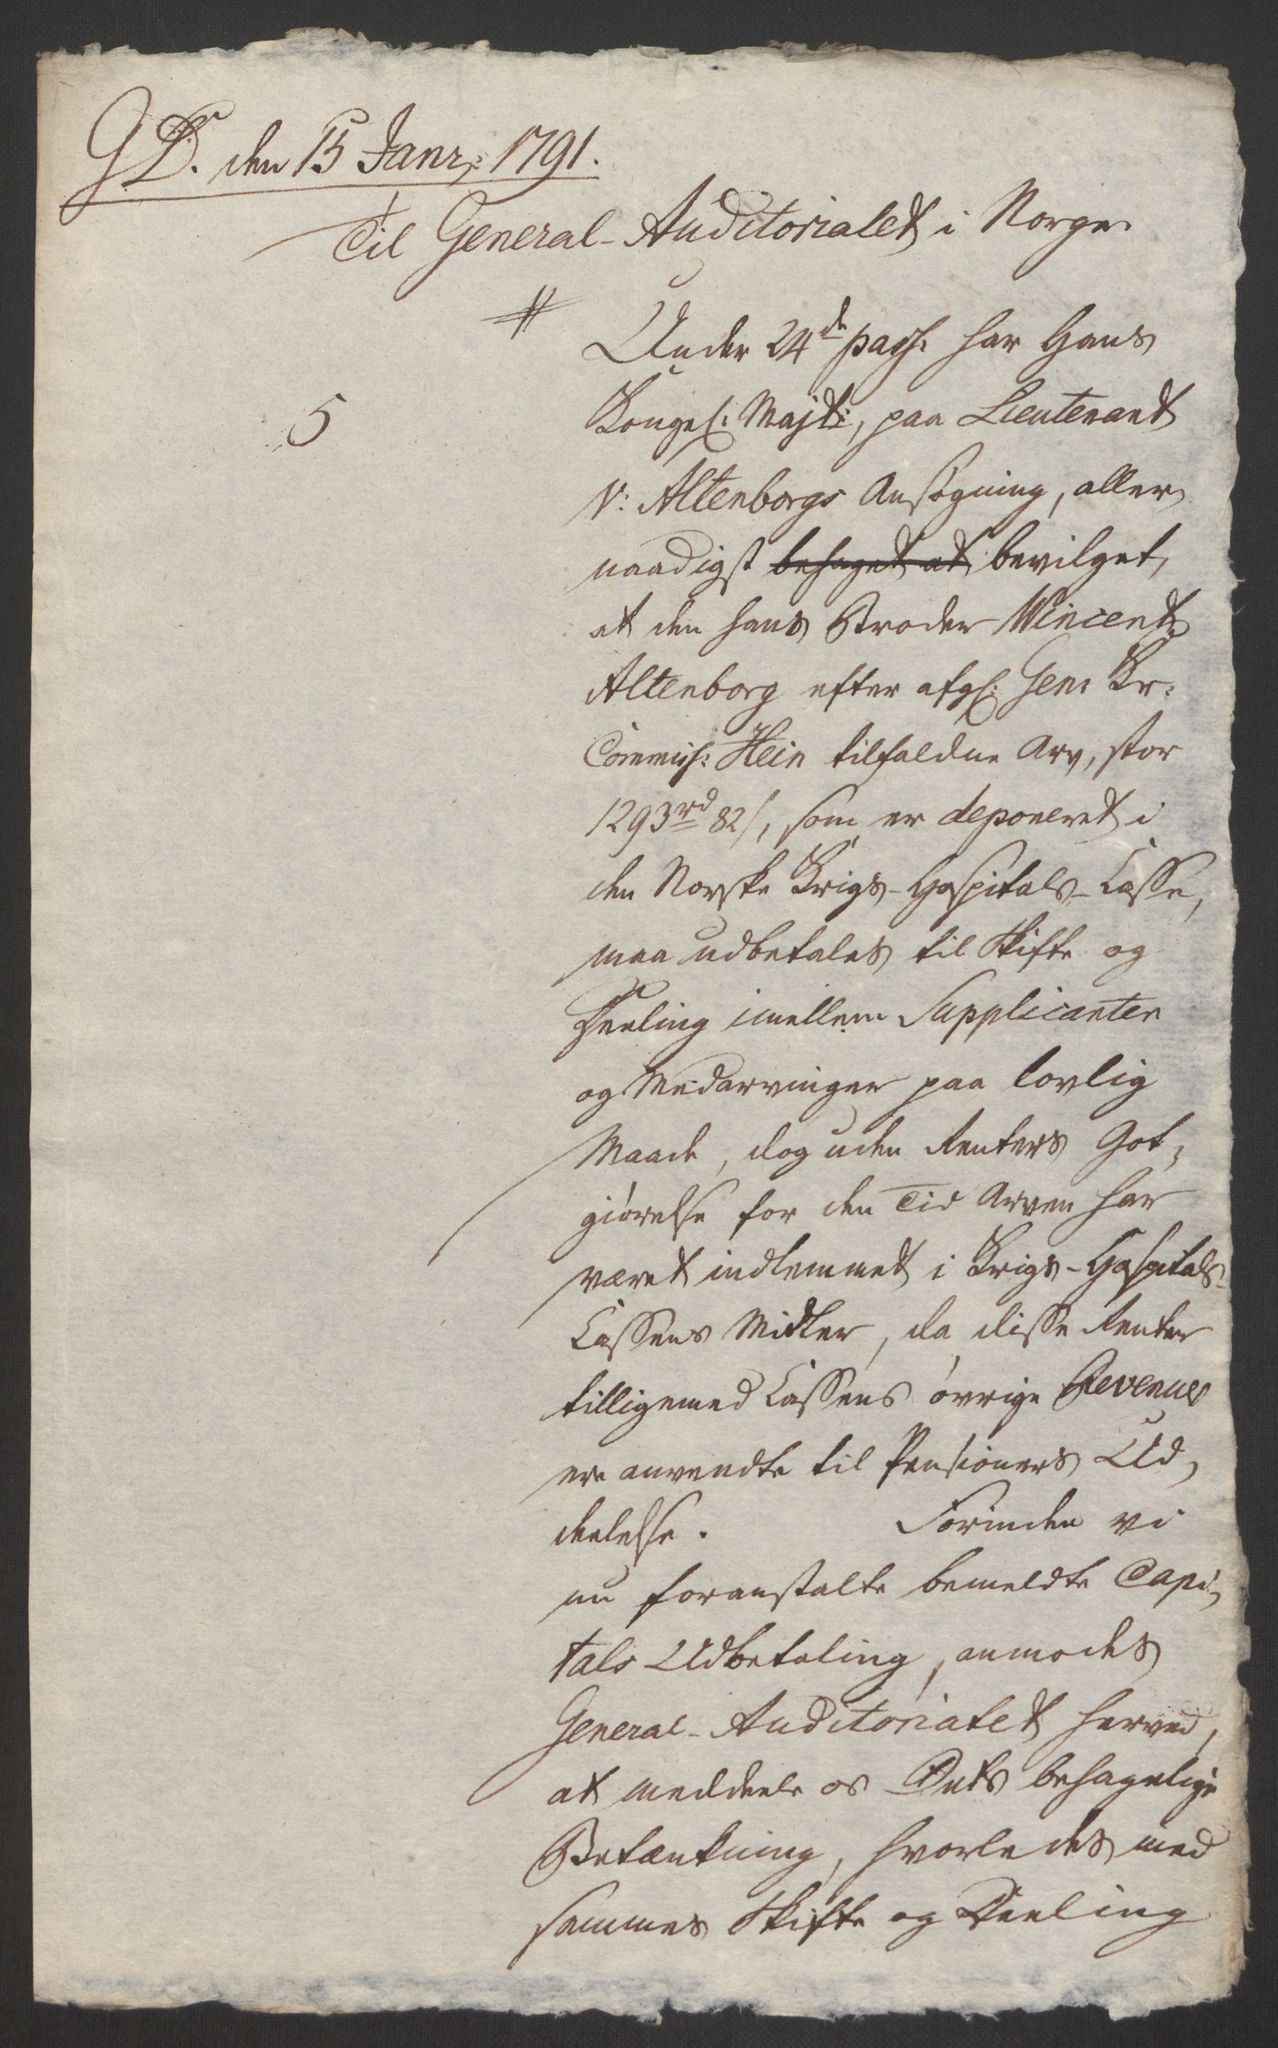 G D. den 15 Janr: 1791.
Til General-Auditorialet i Norge.
#
Under 24de pass: har Hans
5
Kongel: Majt:, paa Lieutenant
v: Altenborgs Ansøgning, aller-
naadigst behaget at bevilget,
at den hans Broder Wincent
Altenborg efter afgl: Gen: Kr:
Commiss: Hein tilfaldne Arv, stor
1293rd 82s, som er deponeret i
den Norske Krigs-Hospitals-Casse,
maa udbetales til Skifte og
Deeling imellem Supplicanten
og Medarvinger paa lovlig
Maade, dog uden Renters Got-
giørelse for den Tid Arven har
været indlemmet i Krigs-Hospitals-
Cassens Midler, da disse Renter
tilligemed Cassens øvrige Revenue
ere anvendte til Pensioners Ud-
deelelse. Forinden vi
nu foranstalte bemeldte Capi-
tals Udbetaling, anmodes
General-Auditoriatet herved,
at meddeele os Dets behagelige
Betænkning, hvorledes med
sammes Skifte og Deeling